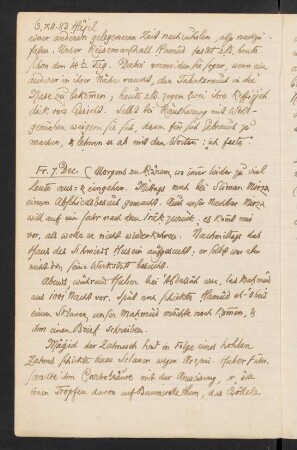 6.XII.83 Hâjel
einer anderen gelegeneren Zeit nachzuholen, also nachzu-
fasten. Unser Reisemarschall Hamûd fastet z.B. heute
schon den 4ten Tag. Dabei vermeiden sie sogar, wenn ein
anderer in ihrer Nähe raucht, den Tabaksrauch in die
Nase zu bekommen, heute z.B. zogen zwei ihre Keffijjeh
dick vor's Gesicht. Selbst bei Räucherung mit Wohl-
gerüchen weigern sie sich, davon für sich Gebrauch zu
machen, & lehnen es ab mit den Worten: ich faste

Fr. 7. Dec. Morgens zu Hause, wo immer leider zu viel
Leute aus- & eingehen. Mittags noch bei
einen Abschiedsbesuch gemacht. Unser Nachbar
will auf ein Jahr nach den 'Irâk zurück; es kommt mir
vor, als wolle er nicht wiederkehren. Nachmittags das
Haus des Schmieds Husein aufgesucht; er selbst war aber
nicht da, seine Werkstatt besucht.
Abends, während Huber bei 'Abdallah war, las Mahmûd
aus 1001 Nacht vor. Spät noch schickte Hamûd el-'Obeid
einen Sklaven, unser Mahmûd möchte noch kommen, &
ihm einen Brief schreiben.
Mâgid der Zahnweh hat in Folge eines hohlen
Zahnes schickte einen Sclaven wegen Arznei. Huber
sandte ihm Carbolsäure mit der Anweisung, er solle
einen Tropfen davon auf Baumwolle thun, das